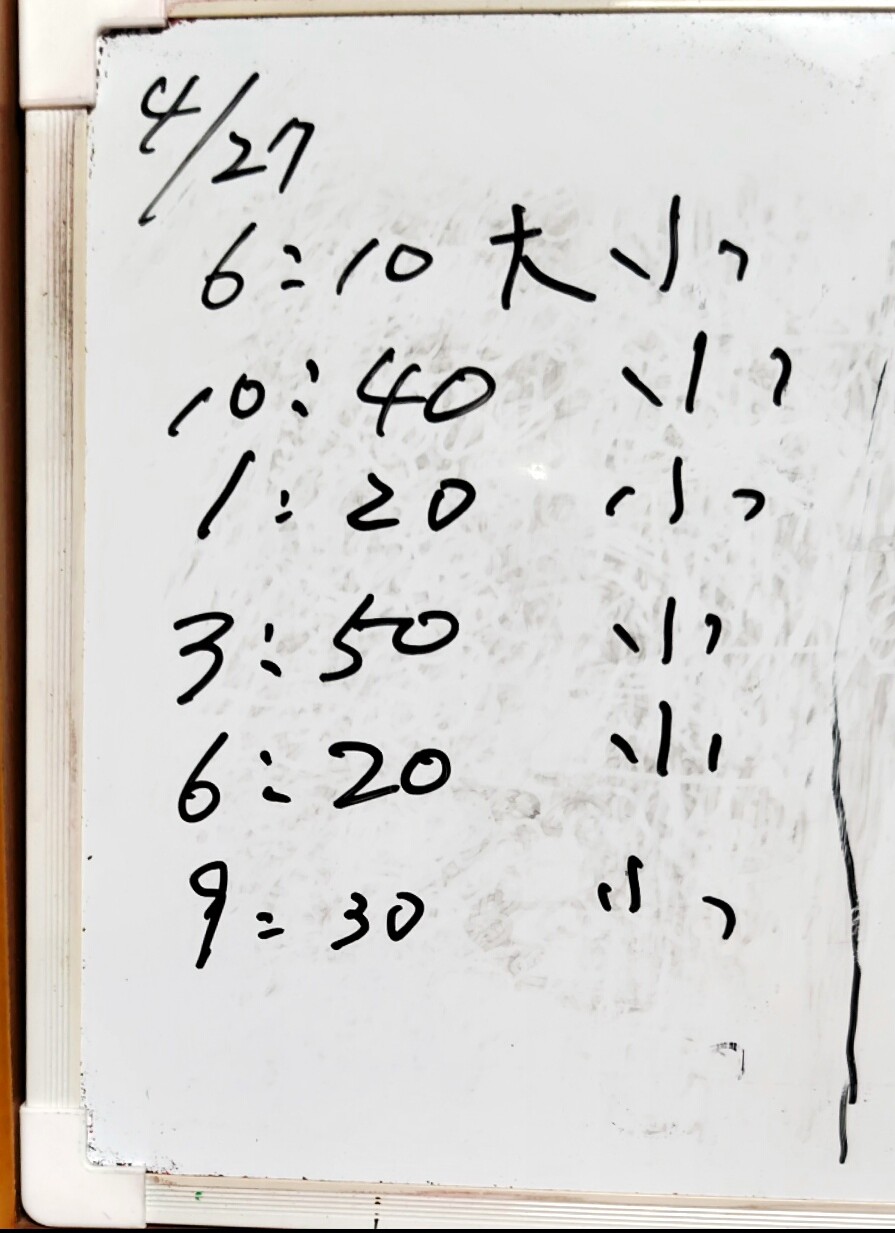 4/27
6:10 大 小
10:40 小
1:20 小
3:50 小
6:20 小
9:30 小